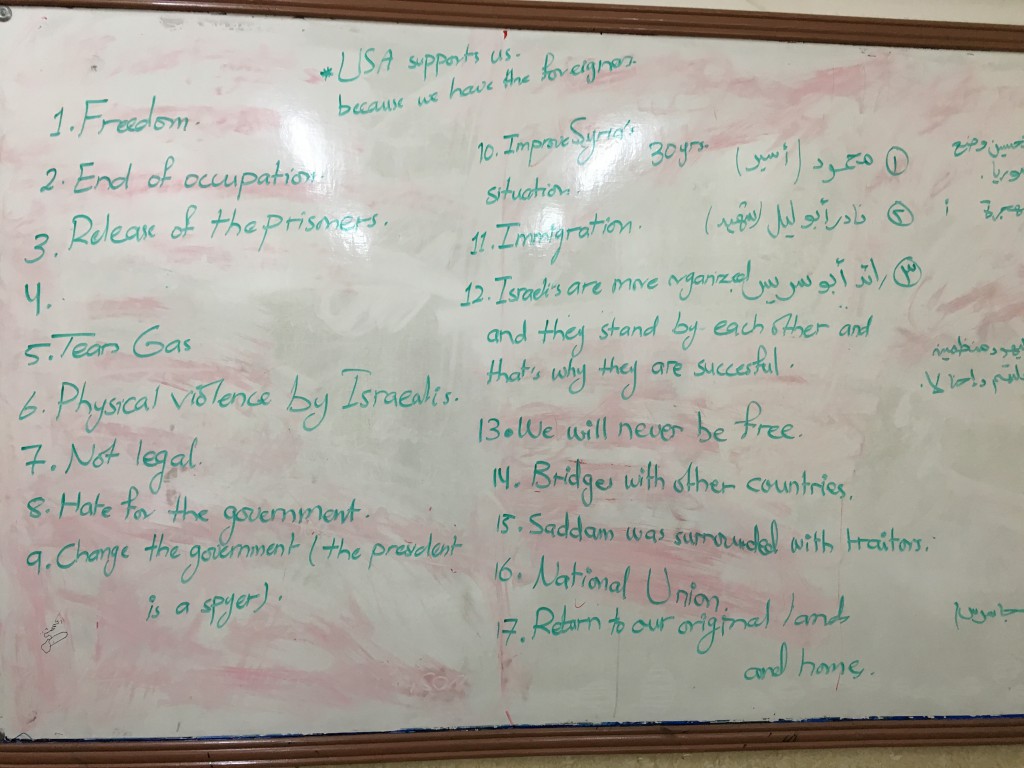 * USA supports us.
because we have the foreigners.
1. Freedom.
2. End of occupation.
3. Release of the prismers.
4.
5. Tear Gas
6. Physical violence by Israealis.
7. Not legal.
8. Hate for the government.
9. Change the government (the president
is a spyer).
10. Improve Syria's
situation.
30 yrs.
11. Immigration.
12. Israelis are more organized
and they stand by each other and
that's why they are succesful.
13. We will never be free.
14. Bridges with other countries.
15. Saddam was surrounded with traitors.
16. National Union.
17. Return to our original land
and home.
① محمود (أسير)
② نادر أبو ليل (شهيد)
③ رائد أبو سريس